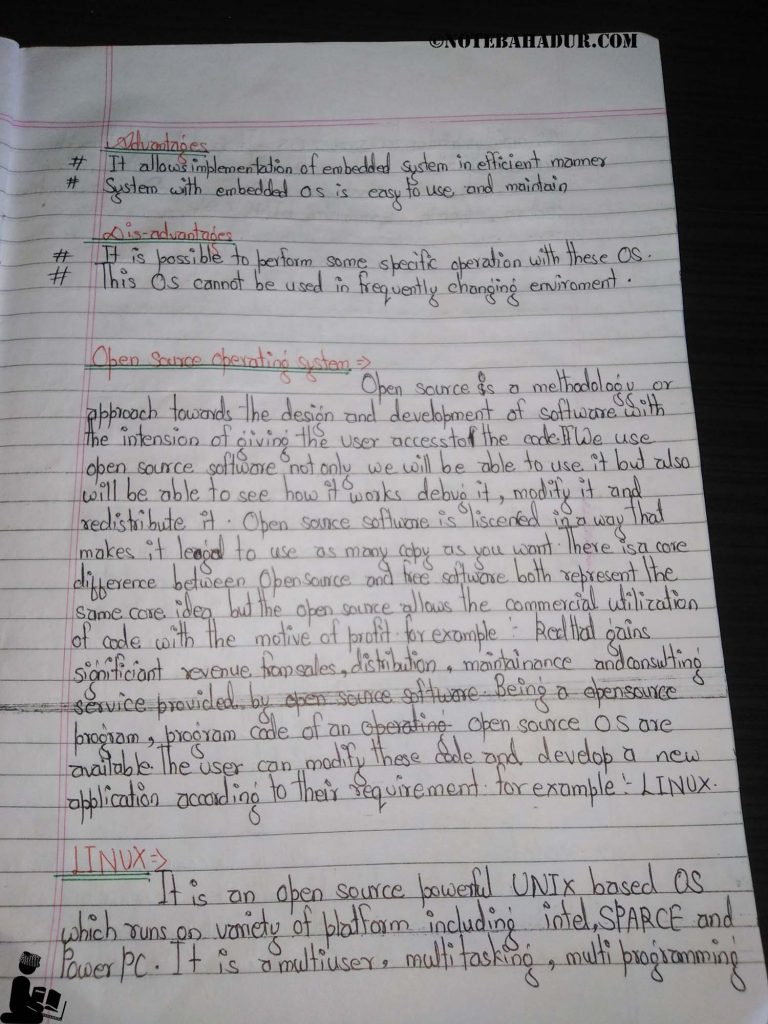 ©NOTEBAHADUR.COM
Advantages
# It allows implementation of embedded system in efficient manner
# System with embedded OS is easy to use and maintain
Dis-advantages
# It is possible to perform some specific operation with these OS.
# This OS cannot be used in frequently changing enviroment.
Open source operating system =>
Open source is a methodology or
approach towards the design and development of software with
the intension of giving the user access to the code. If We use
open source software not only we will be able to use it but also
will be able to see how it works debug it, modify it and
redistribute it. Open source software is liscented in a way that
makes it legal to use as many copy as you want. There is a core
difference between Open source and free software both represent the
same core idea but the open source allows the commercial utilization
of code with the motive of profit. for example :- Red Hat gains
significiant revenue from sales, distribution, maintainance and consulting
service provided by open source software. Being a opensource
program, program code of an operating open source OS are
available. The user can modify these code and develop a new
application according to their requirement. for example :- LINUX.
LINUX =>
It is an open source powerful UNIX based OS
which runs on variety of platform including intel, SPARCE and
Power PC. It is a multiuser, multi tasking, multi programming